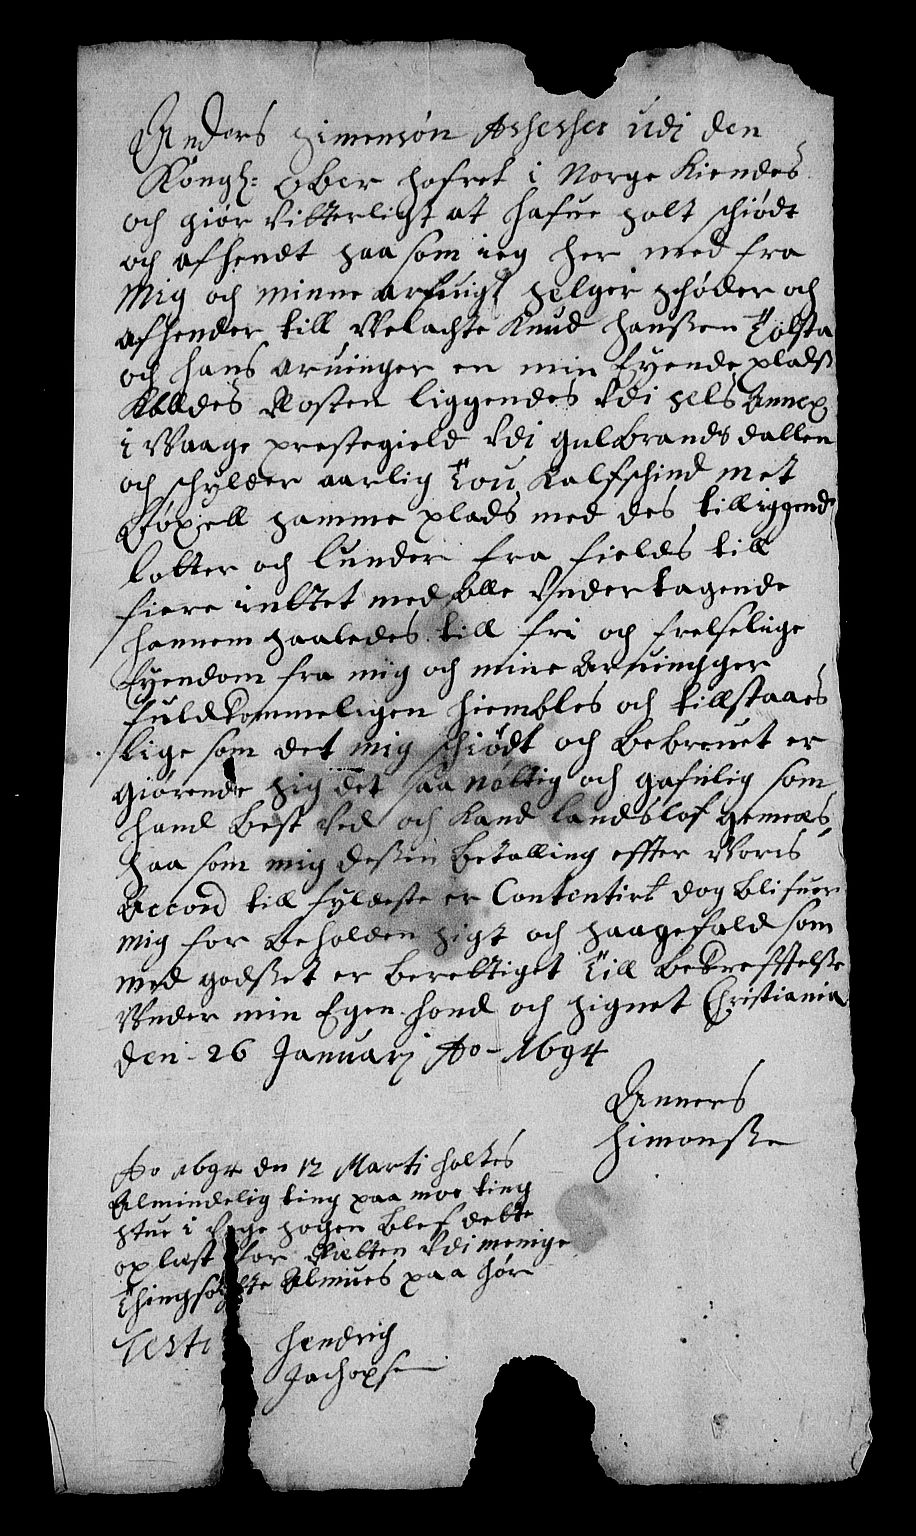 Anders Simensøn Assesser udi den
Kongl: Ober hofret i Norge Kiendes
och giør Vitterligt at hafue solt schiødt
och afhendt saa som ieg her med fra
Mig och minne arfuing selger schøder och
afhender till Velachte Knud Hanßen Tolsta
och hans aruinger en min Eyende pladß
Kalldes Mosten liggendes Vdi Sels Annex
i Waage prestegield Vdi gulbrands dallen
och schylder aarlig Tou Kalfschind met
Bøxell samme plads med des tilliggende
lotter och lunder fra fields till
fiere inttet med alle Vndertagende
hannem saaledes till fri och frelselige
Eyendom fra mig och mine Aruingger
fuldkommeligen hiembles och tillstaaes
lige som det mig schiødt och bebreuet er
giørende sig det saa nøttig och gafnlig som
hand best ved och Kand landslof gemæs
saa som mig deßen betalling effter Voris
Accord till fyldeste er Contentirt dog blifuer
mig for beholden sigt och saagefald som
med godßet er berettiget Till bekrefftelße
Vnder min Egen hond och signet Christiania
den 26 Januarj Ao 1694
Anners
Simonße
Ao 1694 den 12 Marti holtes
Almindelig ting paa moe ting
stue i sogen blef dette
oplæst for Rætten Vdi menige
Thingsøgte Almues paa hør
Test Hendrich
Jachopsen